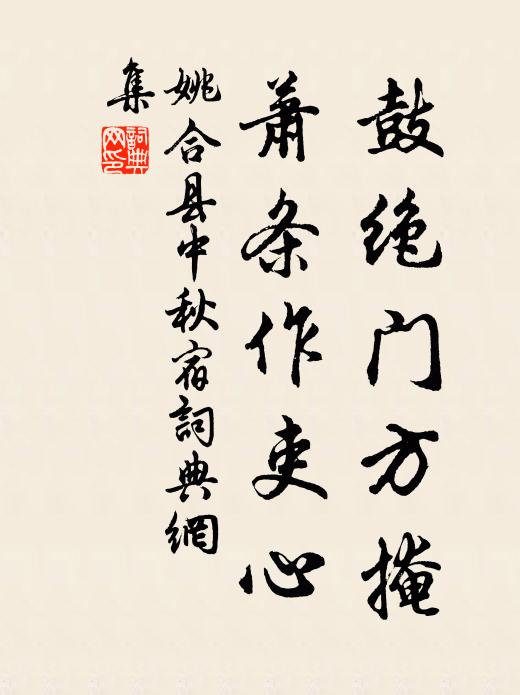 鼓绝门方掩
萧条作吏心
姚合县中秋宿詞典網
集
詞典
网印